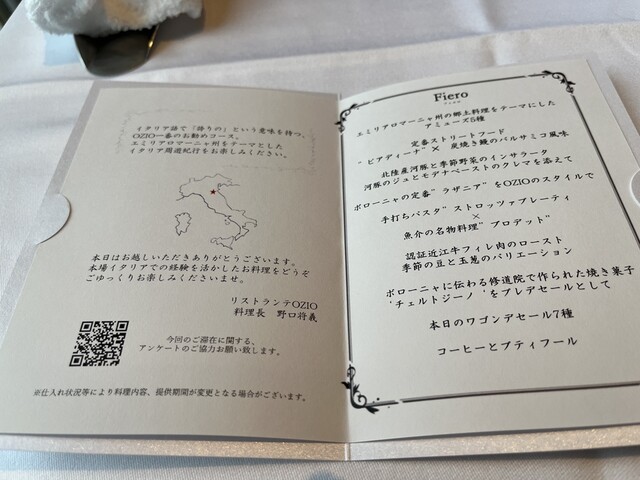 イタリア語で「誇りの」という意味を持つ、
OZIO一番のお勧めコース。
エミリアロマーニャ州をテーマとした
イタリア周遊紀行をお楽しみください。
本日はお越しいただきありがとうございます。
本場イタリアでの経験を活かしたお料理をどうぞ
ごゆっくりお楽しみくださいませ。
リストランテOZIO
料理長 野口将義
今回のご滞在に関する、
アンケートのご協力お願い致します。
※仕入れ状況等により料理内容、提供期間が変更となる場合がございます。
Fiero
エミリアロマーニャ州の郷土料理をテーマにした
アミューズ5種
定番ストリートフード
"ピアディーナ"× 炭焼き鰻のバルサミコ風味
北陸産河豚と季節野菜のインサラータ
河豚のジュとモデナペーストのクレマを添えて
ボローニャの定番"ラザニア"をOZIOのスタイルで
手打ちパスタ"ストロッツァプレーティ
×
魚介の名物料理"ブロデット"
認証近江牛フィレ肉のロースト
季節の豆と玉葱のバリエーション
ボローニャに伝わる修道院で作られた焼き菓子
'チェルトジーノ'をプレデセールとして
本日のワゴンデセール7種
コーヒーとプティフール